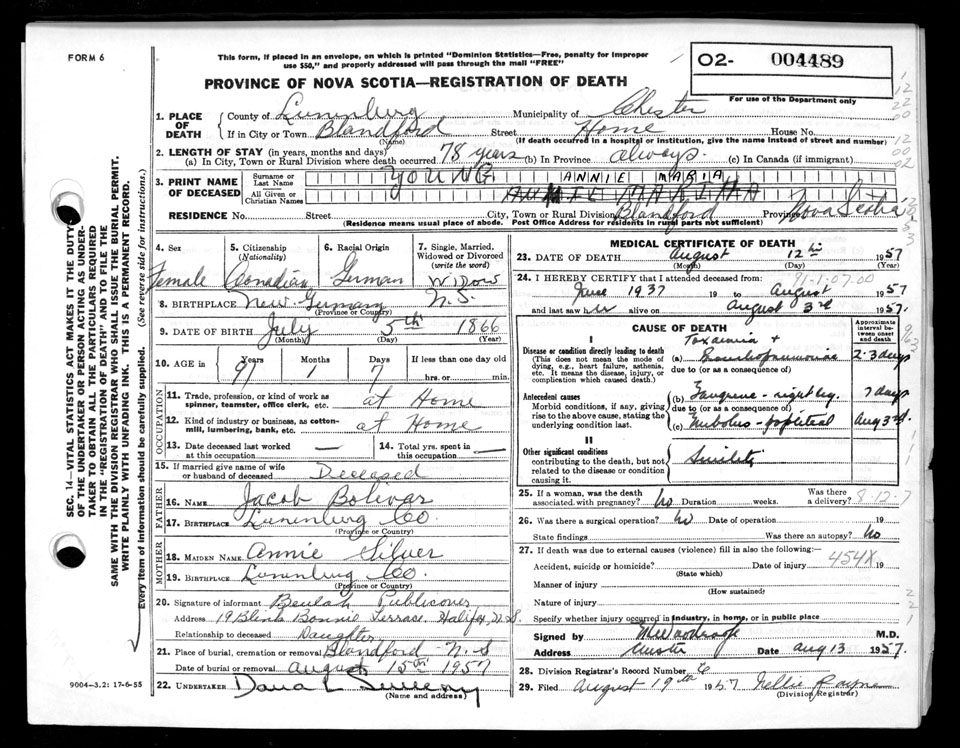 FORM 6
This form, if placed in an envelope, on which is printed "Dominion Statistics—Free, penalty for improper
use $50," and properly addressed will pass through the mail "FREE"
O2- 004489
For use of the Department only
PROVINCE OF NOVA SCOTIA—REGISTRATION OF DEATH
1. PLACE OF DEATH
County of Lunenburg Municipality of Chester
If in City or Town Blandford Street Home House No.
(Name) (If death occurred in a hospital or institution, give the name instead of street and number)
2. LENGTH OF STAY (in years, months and days)
(a) In City, Town or Rural Division where death occurred 78 years (b) In Province always. (c) In Canada (if immigrant)
3. PRINT NAME OF DECEASED
Surname or Last Name YOUNG ANNIE MARIA
All Given or Christian Names
RESIDENCE No. Street City, Town or Rural Division Blandford Province Nova Scotia
(Residence means usual place of abode. Post Office Address for residents in rural parts not sufficient)
4. Sex Female
5. Citizenship (Nationality) Canadian
6. Racial Origin German
7. Single, Married, Widowed or Divorced (write the word) Widow
8. BIRTHPLACE New Germany N.S.
(Province or Country)
9. DATE OF BIRTH July 5th 1866
(Month) (Day) (Year)
10. AGE in Years Months Days If less than one day old
91 1 7 hrs. or min.
OCCUPATION
11. Trade, profession, or kind of work as spinner, teamster, office clerk, etc. at Home
12. Kind of industry or business, as cotton-mill, lumbering, bank, etc. at Home
13. Date deceased last worked at this occupation — 14. Total yrs. spent in this occupation —
15. If married give name of wife or husband of deceased Deceased
FATHER
16. NAME Jacob Bolivar
17. BIRTHPLACE Lunenburg Co
(Province or Country)
MOTHER
18. MAIDEN NAME Annie Silver
19. BIRTHPLACE Lunenburg Co.
(Province or Country)
20. Signature of informant Beulah Publicover
Address 19 Blink Bonnie Terrace. Halifax, N.S.
Relationship to deceased Daughter
21. Place of burial, cremation or removal Blandford N.S
Date of burial or removal August 15th 1957
22. UNDERTAKER Dana L Sweeny
(Name and address)
9004-3.2: 17-6-55
MEDICAL CERTIFICATE OF DEATH
23. DATE OF DEATH August 12th 1957
(Month) (Day) (Year)
24. I HEREBY CERTIFY that I attended deceased from:
June 1937 19 to August 1957
and last saw her alive on August 3rd 1957.
91-1-07.00
CAUSE OF DEATH
Approximate interval between onset and death
I
Disease or condition directly leading to death
(This does not mean the mode of dying, e.g., heart failure, asthenia, etc. It means the disease, injury, or complication which caused death.
Toxaemia +
(a) Bronchopneumonia 2-3 days
due to (or as a consequence of)
Antecedent causes
Morbid conditions, if any, giving rise to the above cause, stating the underlying condition last.
(b) Gangrene - right leg. 7 days
due to (or as a consequence of)
(c) Embolus - popliteal Aug 3rd.
II
Other significant conditions
contributing to the death, but not related to the disease or condition causing it.
Senility
25. If a woman, was the death associated with pregnancy? no Duration weeks. Was there a delivery?
8-12-7
26. Was there a surgical operation? no Date of operation 19
State findings Was there an autopsy? no
27. If death was due to external causes (violence) fill in also the following:—
Accident, suicide or homicide? Date of injury 19
454X
(State which)
Manner of injury
(How sustained)
Nature of injury
Specify whether injury occurred in industry, in home, or in public place
Signed by M.D.
Address Chester Date Aug 13 1957.
28. Division Registrar's Record Number 6
29. Filed August 19th 1957 Nellie
(Division Registrar)
SEC. 14—VITAL STATISTICS ACT MAKES IT THE DUTY
OF THE UNDERTAKER OR PERSON ACTING AS UNDER-
TAKER TO OBTAIN ALL THE PARTICULARS REQUIRED
IN THE "REGISTRATION OF DEATH" AND TO FILE THE
SAME WITH THE DIVISION REGISTRAR WHO SHALL ISSUE THE BURIAL PERMIT.
WRITE PLAINLY WITH UNFADING INK. THIS IS A PERMANENT RECORD.
Every item of information should be carefully supplied. (See reverse side for instructions.)